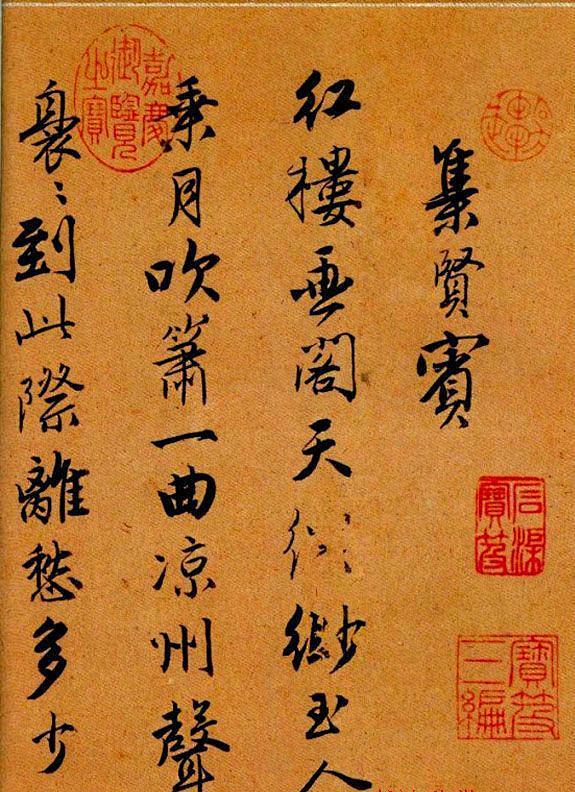 集賢賓
紅樓畫閣天縹緲玉人
乘月吹簫一曲凉州聲
裊〻到此際離愁多少
嘉慶御覽之寶
石渠寶笈
寶笈三編